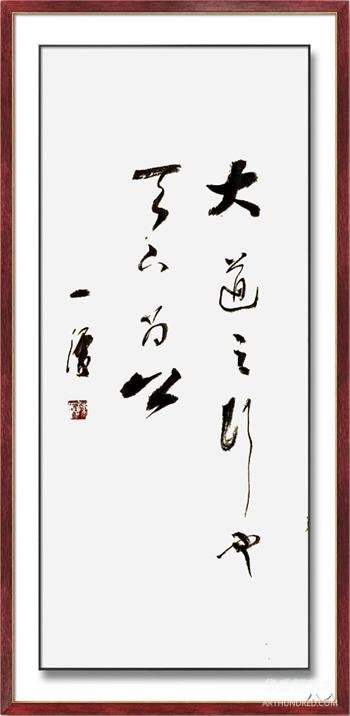 大道之行也
天下为公
一
ARTHUNDRED.COM